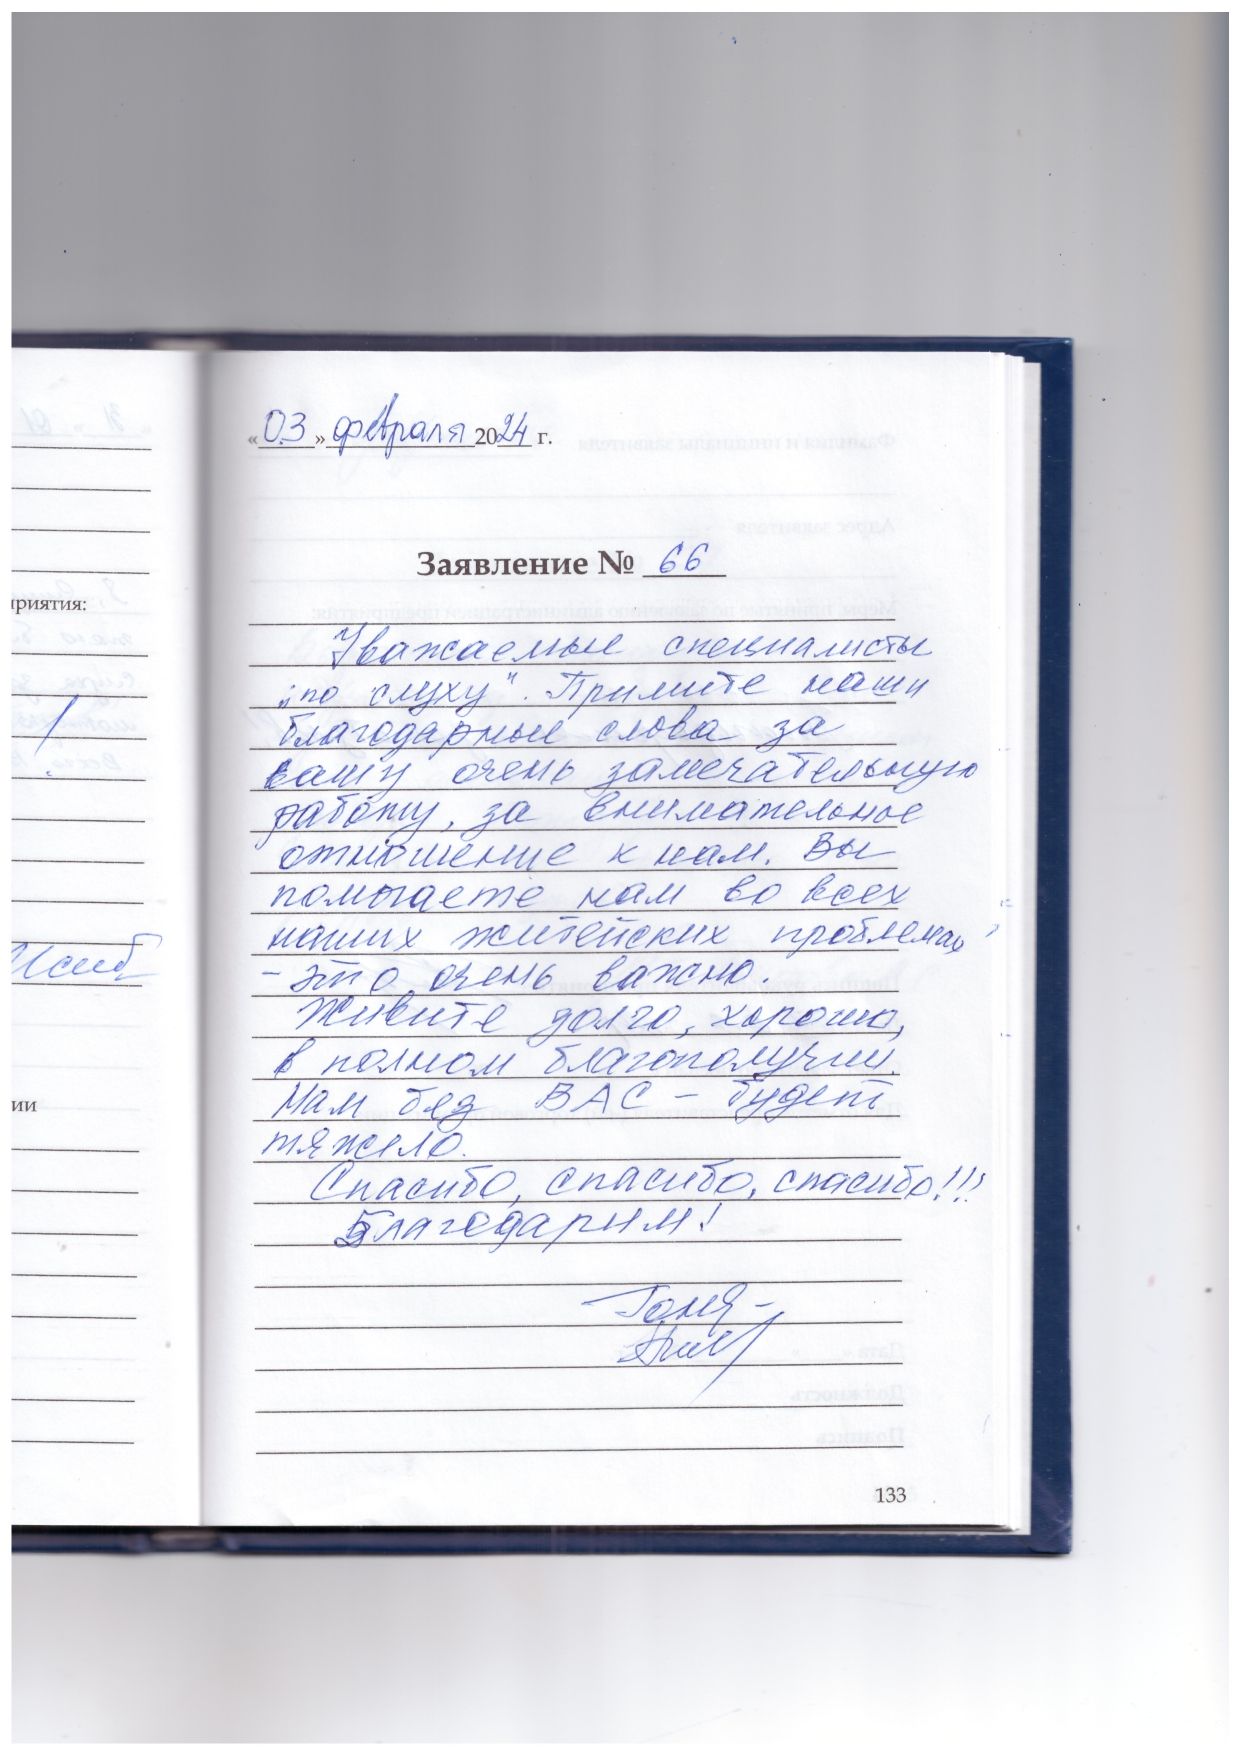 «03» февраля 2024 г.
Заявление № 66
приятия:
Уважаемые специалисты
„по слуху". Примите наши
благодарные слова за
вашу очень замечательную
работу, за внимательное
отношение к нам. Вы
помогаете нам во всех
наших житейских проблемах
- это очень важно.
Живите долго, хорошо,
в полном благополучии.
Нам без ВАС - будет
тяжело.
ии
Спасибо, спасибо, спасибо!!!
Благодарим!
133